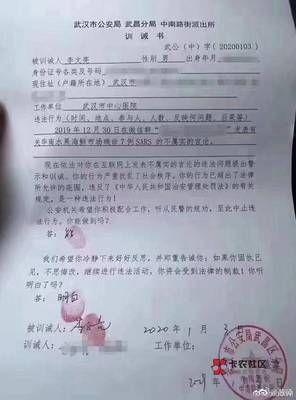 武汉市公安局 武昌分局 中南路街派出所
训 诫 书
武公（中）字（20200103）
被训诫人 李文亮 性别 男 出生年月
身份证号各类及号码
现住址（户籍所在地） 武汉市
工作单位 武汉市中心医院
违法行为（时间、地点、参与人、人数、反映何问题、后果等）
2019年12月30日在微信群 发表有
关华南水果海鲜市场确诊7例SARS的不属实的言论。
现在依法对你在互联网上发表不属实的言论的违法问题提出警
示和训诫。你的行为严重扰乱了社会秩序。你的行为已超出了法律
所允许的范围，违反了《中华人民共和国治安管理处罚法》的有关
规定，是一种违法行为！
公安机关希望你积极配合工作，听从民警的规劝，至此中止违
法行为。你能做到吗？
答：能
我们希望你冷静下来好好反思，并郑重告诫你：如果你固执己
见，不思悔改，继续进行违法活动，你将会受到法律的制裁！你听
明白了吗？
答：明白
被训诫人： 李文亮 2020年1月3日
训诫人： 工作单位：
卡农社区